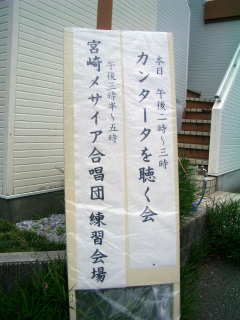 本日 午後二時〜三時
カンタータを聴く会
午後三時半〜五時
宮崎メサイア合唱団 練習会場